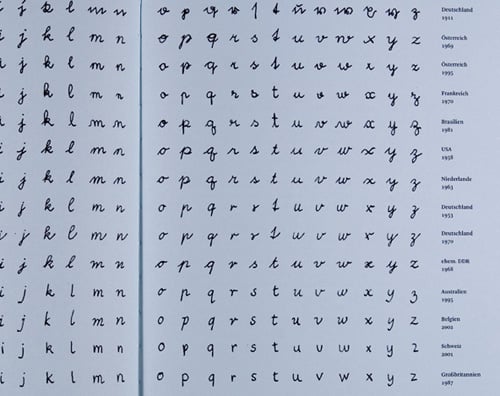 i j k l m n o p q r s t u v w x y z Deutschland 1911
i j k l m n o p q r s t u v w x y z Österreich 1969
i j k l m n o p q r s t u v w x y z Österreich 1995
i j k l m n o p q r s t u v w x y z Frankreich 1970
i j k l m n o p q r s t u v w x y z Brasilien 1981
i j k l m n o p q r s t u v w x y z USA 1958
i j k l m n o p q r s t u v w x y z Niederlande 1963
i j k l m n o p q r s t u v w x y z Deutschland 1953
i j k l m n o p q r s t u v w x y z Deutschland 1970
i j k l m n o p q r s t u v w x y z ehem. DDR 1968
i j k l m n o p q r s t u v w x y z Australien 1995
i j k l m n o p q r s t u v w x y z Belgien 2002
i j k l m n o p q r s t u v w x y z Schweiz 2001
i j k l m n o p q r s t u v w x y z Großbritannien 1987